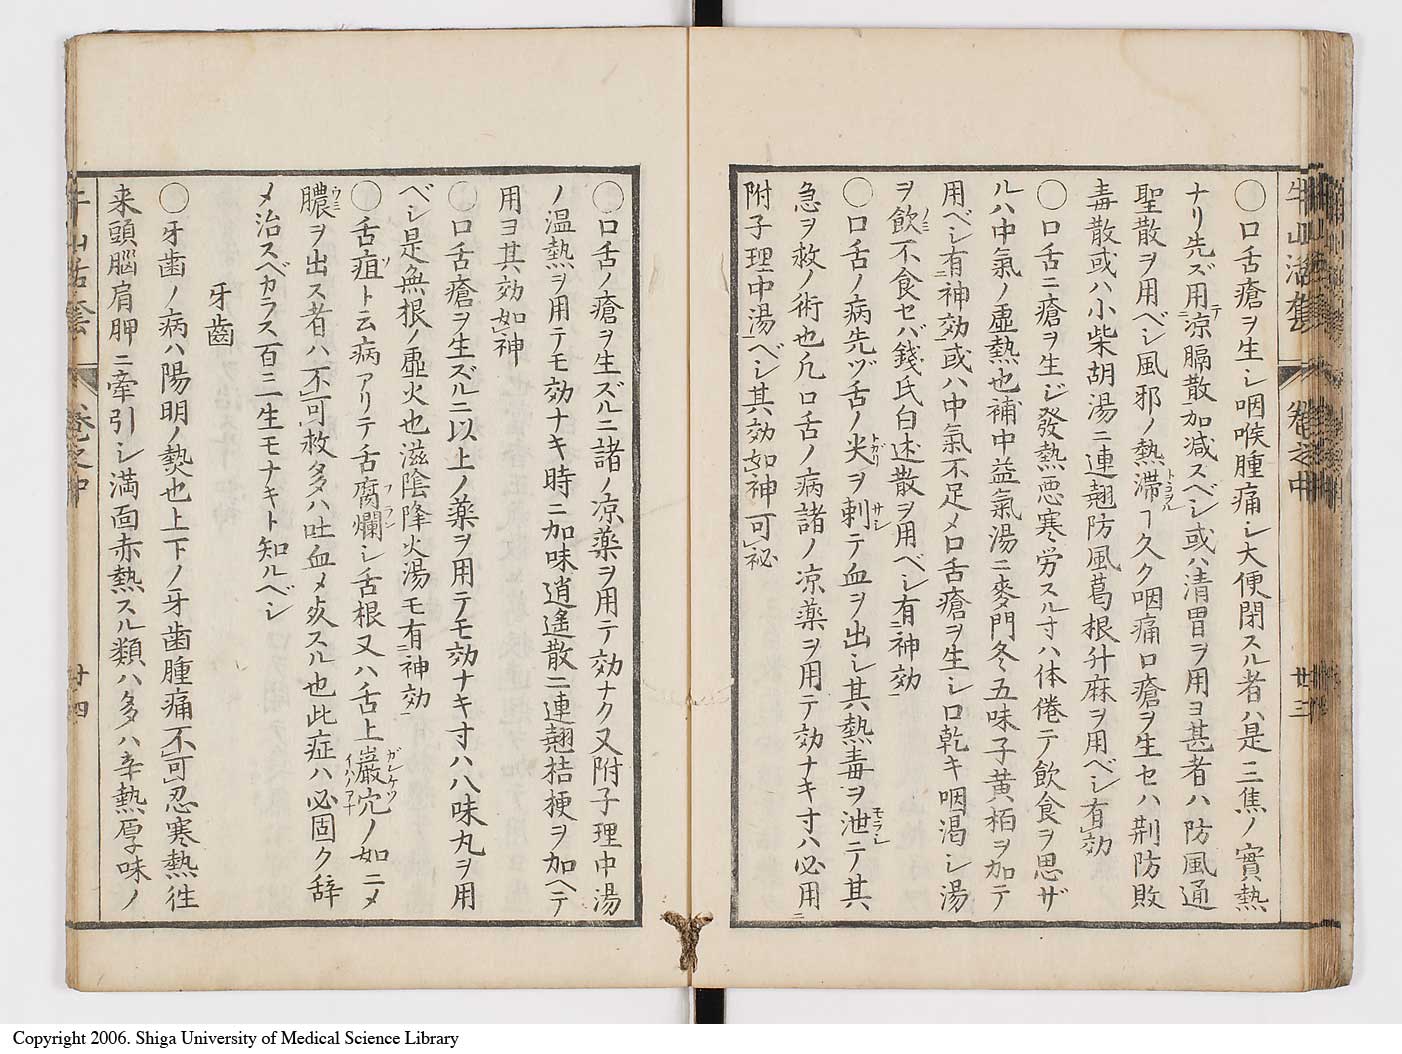 〇口舌瘡ヲ生シ咽喉腫痛シ大便閉スル者ハ是三焦ノ實熱
ナリ先ズ用テ涼膈散加减スベシ或ハ清胃ヲ用ヨ甚者ハ防風通
聖散ヲ用ベシ風邪ノ熱滞ヿ久ク咽痛口瘡ヲ生セハ荆防敗
毒散或ハ小柴胡湯ニ連翹防風葛根升麻ヲ用ベシ有効
〇口舌ニ瘡ヲ生ジ發熱悪寒労スル寸ハ体倦テ飲食ヲ思ザ
ルハ中氣ノ虚熱也補中益氣湯ニ麥門冬五味子黄栢ヲ加テ
用ベシ有神効或ハ中氣不足メ口舌瘡ヲ生シ口乾キ咽渇シ湯
ヲ飲不食セバ錢氏白朮散ヲ用ベシ有神効
〇口舌ノ病先ヅ舌ノ尖ヲ刺テ血ヲ出シ其熱毒ヲ泄ニテ其
急ヲ救ノ術也凡口舌ノ病諸ノ凉藥ヲ用テ効ナキ寸ハ必用
附子理中湯ベシ其効如神可祕
〇口舌ノ瘡ヲ生ズルニ諸ノ凉藥ヲ用テ効ナク又附子理中湯
ノ温熱ヲ用テモ効ナキ時ニ加味逍遙散ニ連翹桔梗ヲ加ヘテ
用ヨ其効如神
〇口舌瘡ヲ生ズルニ以上ノ藥ヲ用テモ効ナキ寸ハ八味丸ヲ用
ベシ是無根ノ虚火也滋陰降火湯モ有神効
〇舌疽ト云病アリテ舌腐爛シ舌根又ハ舌上巖穴ノ如ニメ
膿ヲ出ス者ハ不可救多ハ吐血メ死スル也此症ハ必固ク辞
メ治スベカラス百ニ一生モナキト知ルベシ
牙齒
〇牙歯ノ病ハ陽明ノ熱也上下ノ牙歯腫痛不可忍寒熱徃
来頭腦肩胛ニ牽引シ満面赤熱スル類ハ多ハ辛熱厚味ノ
牛山活套
巻之中
廿三
廿四
Copyright 2006. Shiga University of Medical Science Library